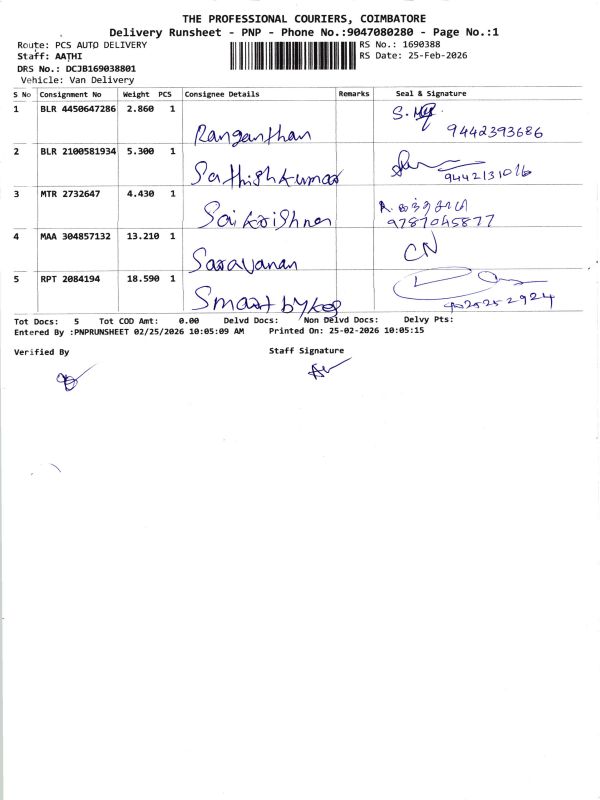 THE PROFESSIONAL COURIERS, COIMBATORE
Delivery Runsheet - PNP - Phone No.:9047080280 - Page No.:1
Route: PCS AUTO DELIVERY
RS No.: 1690388
Staff: AATHI
RS Date: 25-Feb-2026
DRS No.: DCJB169038801
Vehicle: Van Delivery
S No Consignment No Weight PCS Consignee Details Remarks Seal & Signature
1 BLR 4450647286 2.860 1 Ranganthan 9442393686
2 BLR 2100581934 5.300 1 Sathishkumar
3 MTR 2732647 4.430 1 Saikrishna 9787045877
4 MAA 304857132 13.210 1 Saravanan CN
5 RPT 2084194 18.590 1 Smart bykes
Tot Docs: 5 Tot COD Amt: 0.00 Delvd Docs: Non Delvd Docs: Delvy Pts:
Entered By :PNPRUNSHEET 02/25/2026 10:05:09 AM Printed On: 25-02-2026 10:05:15
Verified By Staff Signature